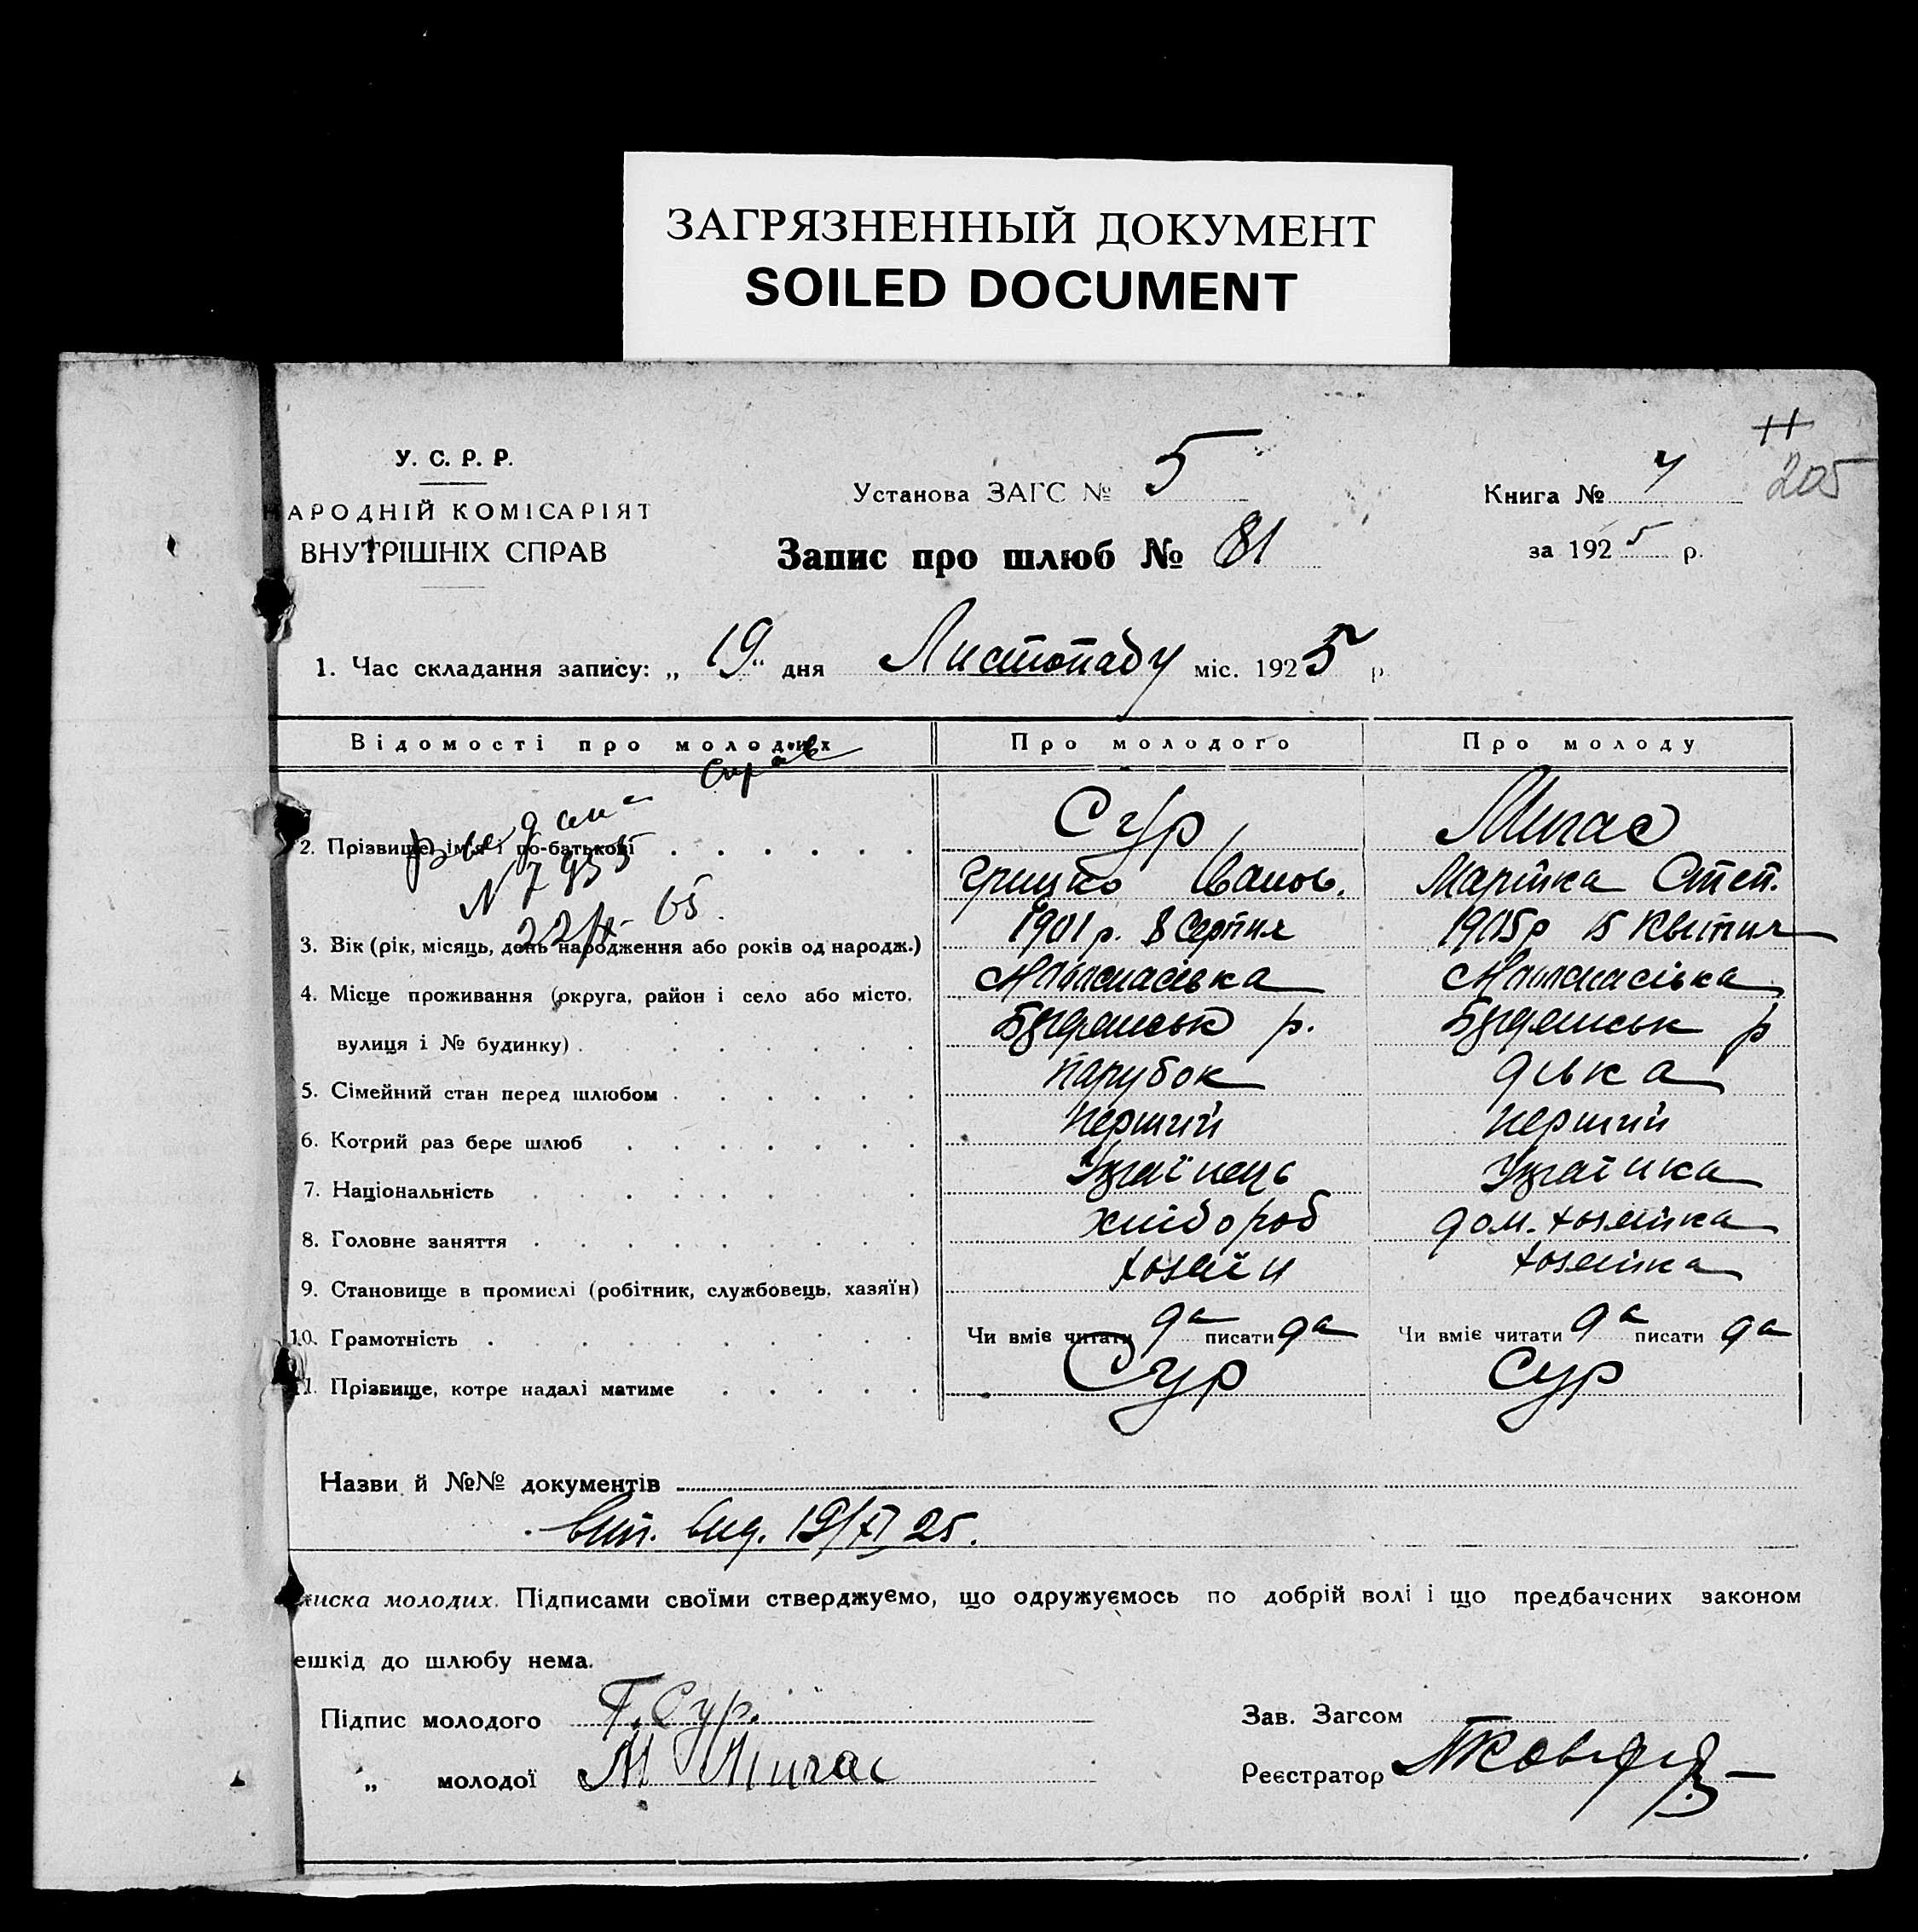 ЗАГРЯЗНЕННЫЙ ДОКУМЕНТ
SOILED DOCUMENT
205
У. С. Р. Р.
НАРОДНІЙ КОМІСАРІЯТ
ВНУТРІШНІХ СПРАВ
Установа ЗАГС № 5
Книга №
Запис про шлюб № 81
за 1925 р.
1. Час складання запису: „19“ дня Листопаду міс. 1925 р
Відомості про молодих
Про молодого
Про молоду
справ
N 7955
22/X- 65.
2. Прізвище, ім'я і по-батькові
Сур
Мигас
Грицько Іванов.
Марійка Степ.
3. Вік (рік, місяць, день народження або років од народж.)
1901 р. 8 Серпня
1905 р 15 Квітня
4. Місце проживання (округа, район і село або місто,
вулиця і № будинку)
р.
р
5. Сімейний стан перед шлюбом
парубок
дівка
6. Котрий раз бере шлюб
перший
перший
7. Національність
Українець
Українка
8. Головне заняття
хлібороб
дом. хозяйка
9. Становище в промислі (робітник, службовець, хазяїн)
хозяїн
хозяйка
10. Грамотність
Чи вміє читати да писати да
Чи вміє читати да писати да
11. Прізвище, котре надалі матиме
Сур
Сур
Назви й №№ документів
вит. вид. 19/XI 25.
писка молодих. Підписами своїми стверджуємо, що одружуємось по добрій волі і що предбачених законом
ешкід до шлюбу нема.
Підпис молодого Г. Сур.
Зав. Загсом
„ молодої М Мигас
Реєстратор